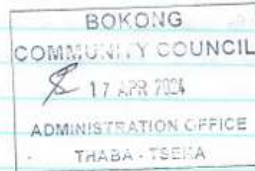 BOKONG
COMMUNITY COUNCIL
17 APR 2024
ADMINISTRATION OFFICE
THABA - TSEKA